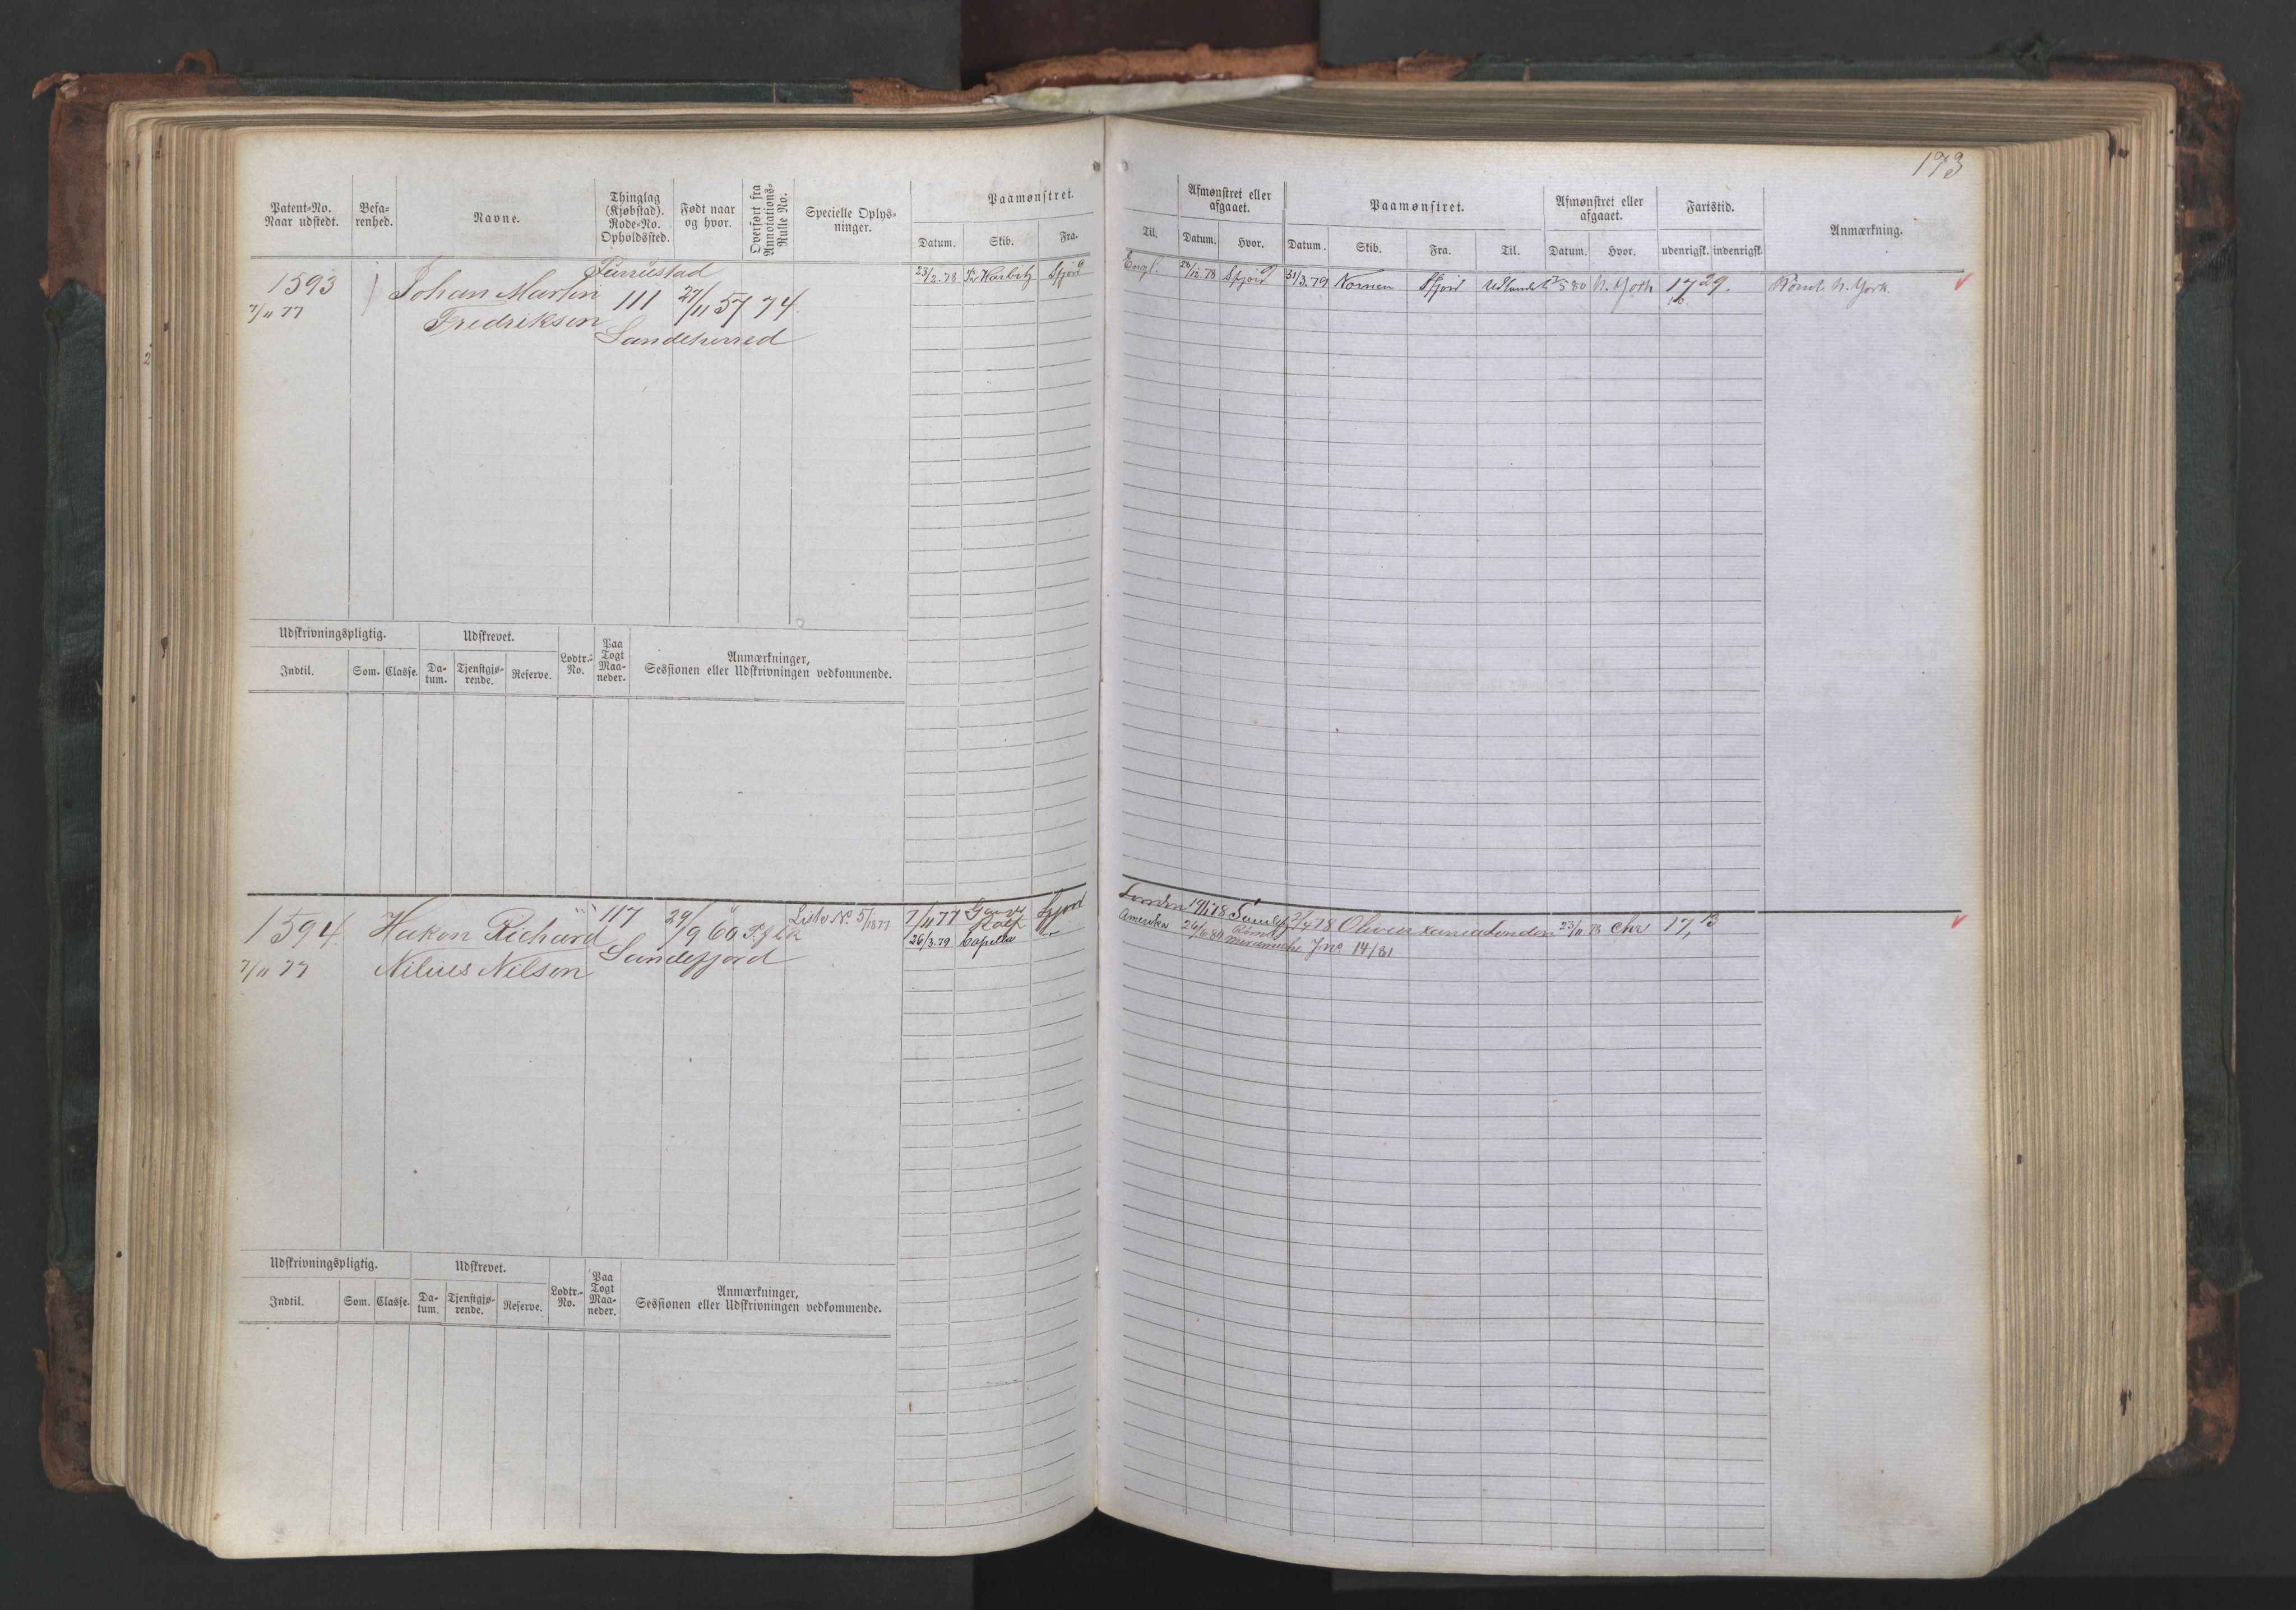 173
Patent-No. Naar udstedt.
Befa-renhed.
Navne.
Thinglag (Kjøbstad). Rode-No. Opholdssted.
Født naar og hvor.
Overført fra Annotations-Rulle No.
Specielle Oplys-ninger.
Paamønstret.
Datum. Skib. Fra.
Til.
Afmønstret eller afgaaet.
Datum. Hvor.
Paamønstret.
Datum. Skib. Fra. Til.
Afmønstret eller afgaaet.
Datum. Hvor.
Fartstid.
udenrigsk. indenrigsk.
Anmærkning.
Furustad
1593 Johan Martin 111 27/11 57 74.
7/11 77 Fredriksen
Sandeherred
23/2.78 Sfjord Engl. 28/12.78 Sfjord 31/3.79 Nornen Sfjord Udlandet 80 N. York 17 29. Rømt N. York.
Udskrivningspligtig. Udskrevet.
Indtil. Som. Classe. Da-tum. Tjenstgjø-rende. Reserve. Lodtr.-No. Paa Togt Maa-neder.
Anmærkninger, Sessionen eller Udskrivningen vedkommende.
1594. Hakon Richard 117 29/9 60
7/11 77 Nilius Nilsen Sandefjord
Liste No 5/1877
7/11 77 Sfjord London
26/3.79 Capella Amerika 26/6 80 Rømt
78 23/11 78 Chr 17, 13
Jno 14/81
Udskrivningspligtig. Udskrevet.
Indtil. Som. Classe. Da-tum. Tjenstgjø-rende. Reserve. Lodtr.-No. Paa Togt Maa-neder.
Anmærkninger, Sessionen eller Udskrivningen vedkommende.